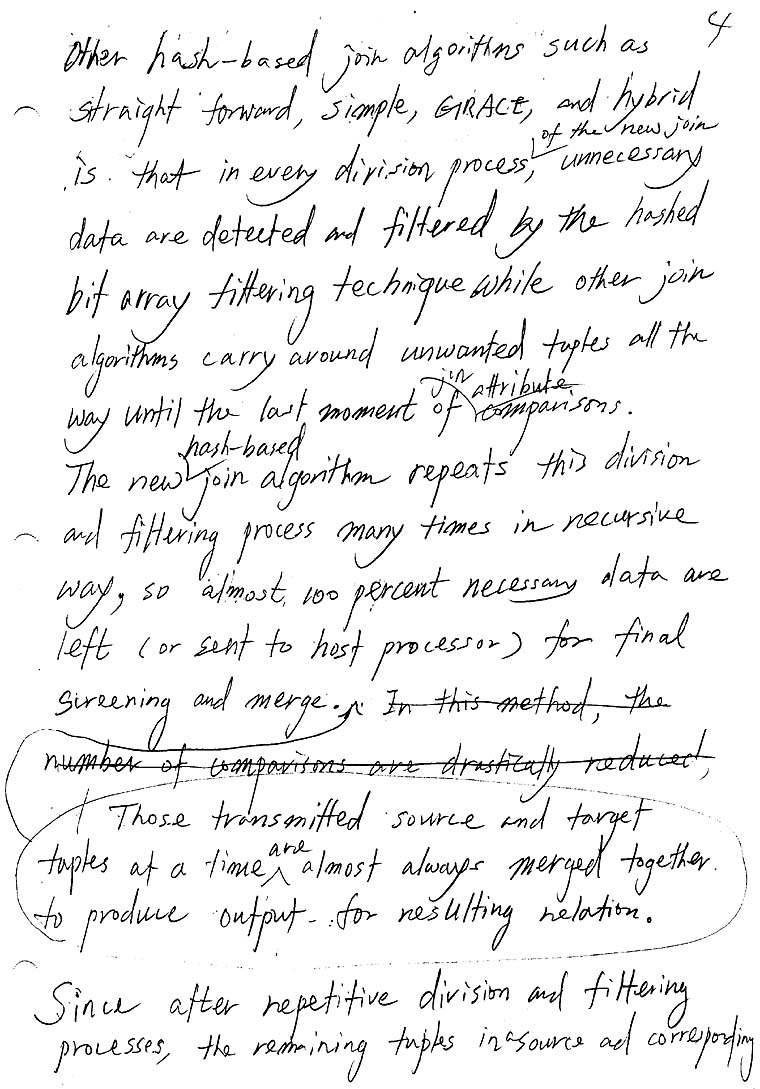 4
Other hash-based join algorithms such as
straight forward, simple, GRACE, and hybrid
of the new join
is that in every division process, unnecessary
data are detected and filtered by the hashed
bit array filtering technique while other join
algorithms carry around unwanted tuples all the
join attribute
way until the last moment of comparisons.
hash-based
The new join algorithm repeats this division
and filtering process many times in recursive
way, so almost 100 percent necessary data are
left (or sent to host processor) for final
screening and merge. In this method, the
number of comparisons are drastically reduced,
Those transmitted source and target
are
tuples at a time almost always merged together
to produce output for resulting relation.
Since after repetitive division and filtering
processes, the remaining tuples in source ad corresponding